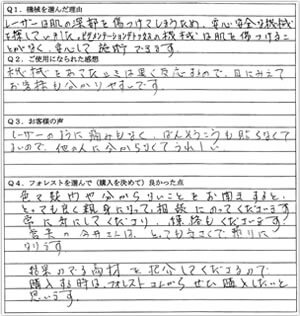 Q1．機械を選んだ理由
レーザーは肌の深部を傷つけてしまうため、安心安全な機械
を探していました。ピグメンテーションデトックスの機械は肌を傷つけるこ
とがなく、安心して施術できます。
Q2．ご使用になられた感想
機械をあてたときは黒く反応するので、目にみえて
お客様も分かりやすいです。
Q3．お客様の声
レーザーのように痛みもなく、ばんそうこうも貼らなくて
よいので、他の人に分からなくてうれしい
Q4．フォレストを選んで（購入を決めて）良かった点
色々疑問や分からないことをお聞きすると、
とっても良く親身になって、相談にのってくださいます。
常に対応してくださり、連絡もくださいます。
営業の今井さんは、とってもきさくで頼りに
なります。
結果のでる商材を紹介してくださるので
購入する時は、フォレストさんからぜひ購入したいと
思います。